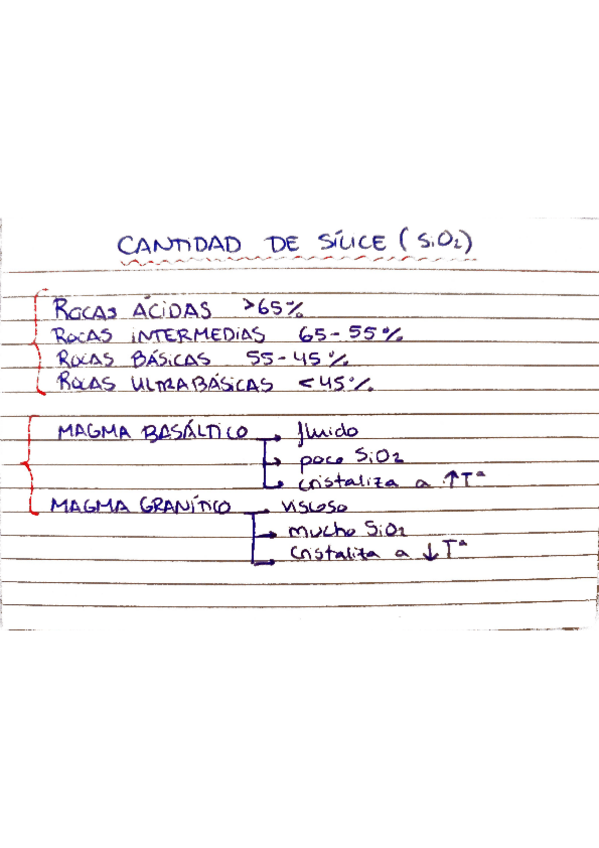 CANTIDAD DE SÍLICE (SiO2)
ROCAS ÁCIDAS >65%
ROCAS INTERMEDIAS 65-55%
ROCAS BÁSICAS 55-45%
ROCAS ULTRABÁSICAS <45%
MAGMA BASÁLTICO → fluido
→ poco SiO2
→ cristaliza a ↑Tª
MAGMA GRANÍTICO → viscoso
→ mucho SiO2
cristaliza a ↓Tª